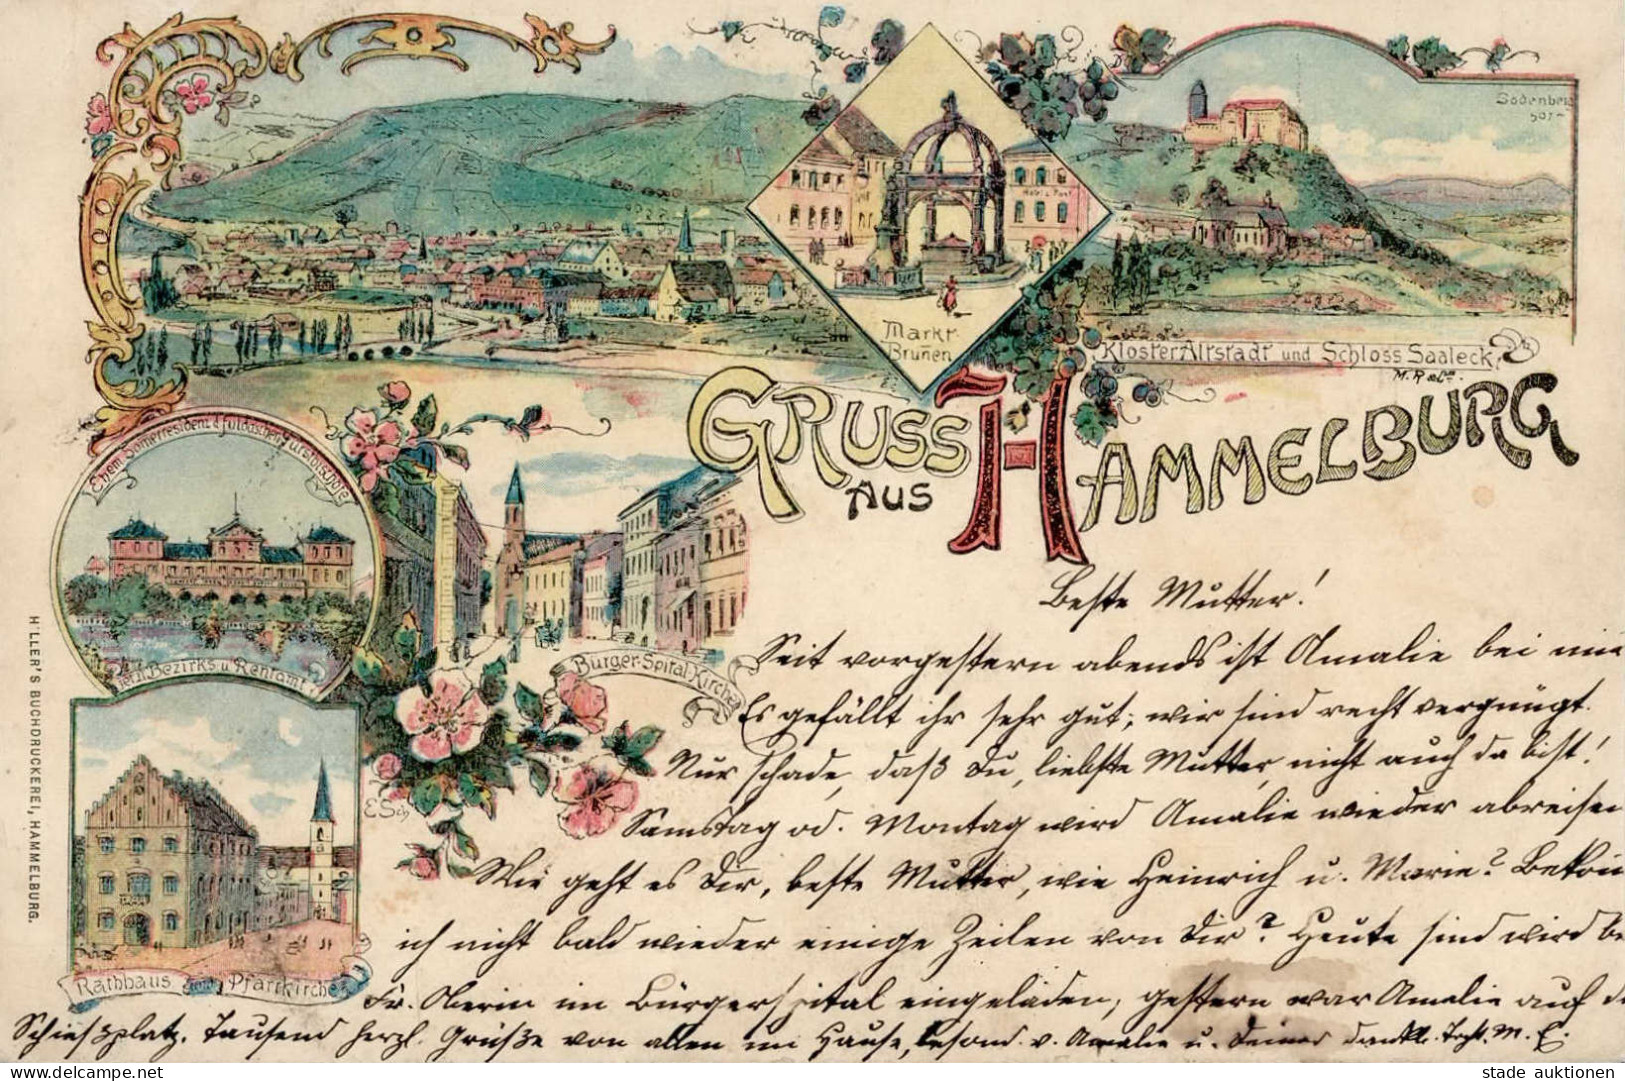 Sodenberg
Hotel z. Post
Markt-
Brunen
Kloster Altstadt und Schloss Saaleck
M. R & Co.
GRUSS
AUS
HAMMELBURG
Ehem. Somerresidenz d. fuldaischen Fürstbischöfe
jetzt Bezirks u. Rentamt
Bürger-Spital-Kirche
E.Sch
Rathhaus und Pfarrkirche
HILLER'S BUCHDRUCKEREI, HAMMELBURG.
Beste Mutter!
Seit vorgestern abends ist Amalie bei mir
Es gefällt ihr sehr gut; wir sind recht vergnügt.
Nur schade, daß Du, liebste Mutter, nicht auch da bist!
Samstag od. Montag wird Amalie wieder abreisen
Wie geht es Dir, beste Mutter, wie Heinrich u. Marie?
ich nicht bald wieder einige Zeilen von Dir? Heute sind wir
Fr. Oberin im Bürgerspital eingeladen, gestern war Amalie auf d
Schießplatz. Tausend herzl. Grüße von allen im Hause, besond. v. Amalie u. Deiner dankb. Tocht. M. E.
stade auktionen